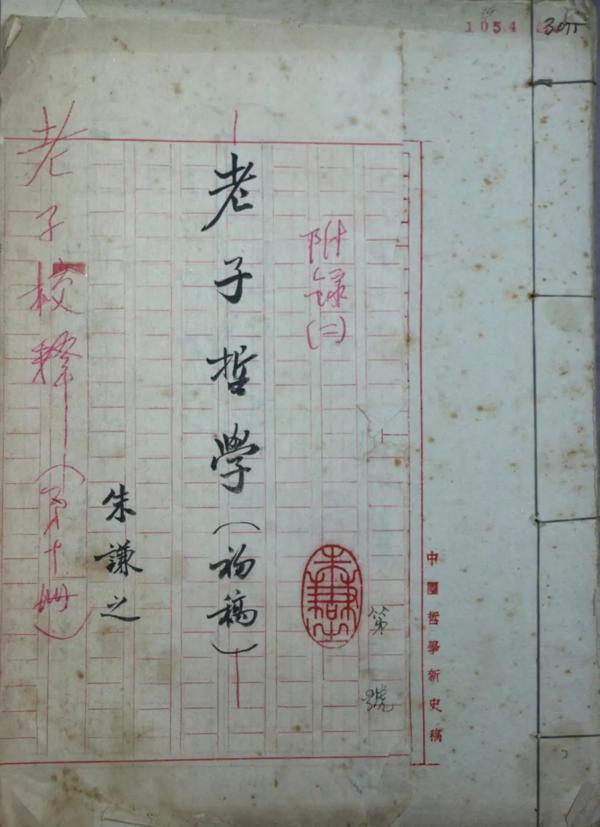 1054
中國哲學新史稿
第 號
附錄(二)
朱謙之
老子哲學(初稿)
朱謙之
老子校釋(第十冊)